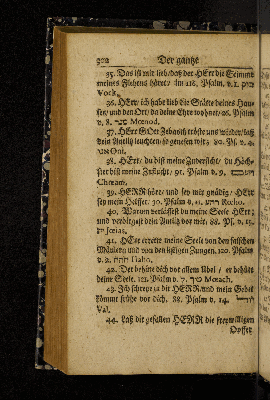 302 Der gantze
35. Das ist mir lieb/ daß der HErr die Stimme
meines Flehens höret/ im 116. Psalm, v. 1.
Vock.
36. HErr/ ich habe lieb die Stätte deines Hau-
ses/ und den Ort/ da deine Ehre wohnet/ 26. Psalm
v. 8. Mœnod.
37. HErr GOtt Zebaoth tröste uns wieder/ laß
dein Antlitz leuchten/ so genesen wir; 80. Ps. v. 4.
Oni.
38. HErr/ du bist meine Zuversicht/ du Höch-
ster bist meine Zuflucht/ 91. Psalm v. 9.
39. HERR höre/ und sey mir gnädig/ HErr
sey mein Helffer. 30. Psalm v. 11. Rocho.
40. Warum verlässest du meine Seele HErr/
und verbirgest dein Antlitz vor mir. 88. Ps. v. 15.
41. HErr errette meine Seele von den falschen
Mäulern und von den listigen Zungen. 120. Psalm
v. 2.
42. Der behüte dich vor allem Ubel / er behüte
deine Seele. 121. Psalm v. 7.
43. Ich schreye zu dir HERR und mein Gebet
kömmt frühe vor dich. 88. Psalm v. 14.
Val.
44. Laß dir gefallen HERR die freywilligen
Opffer